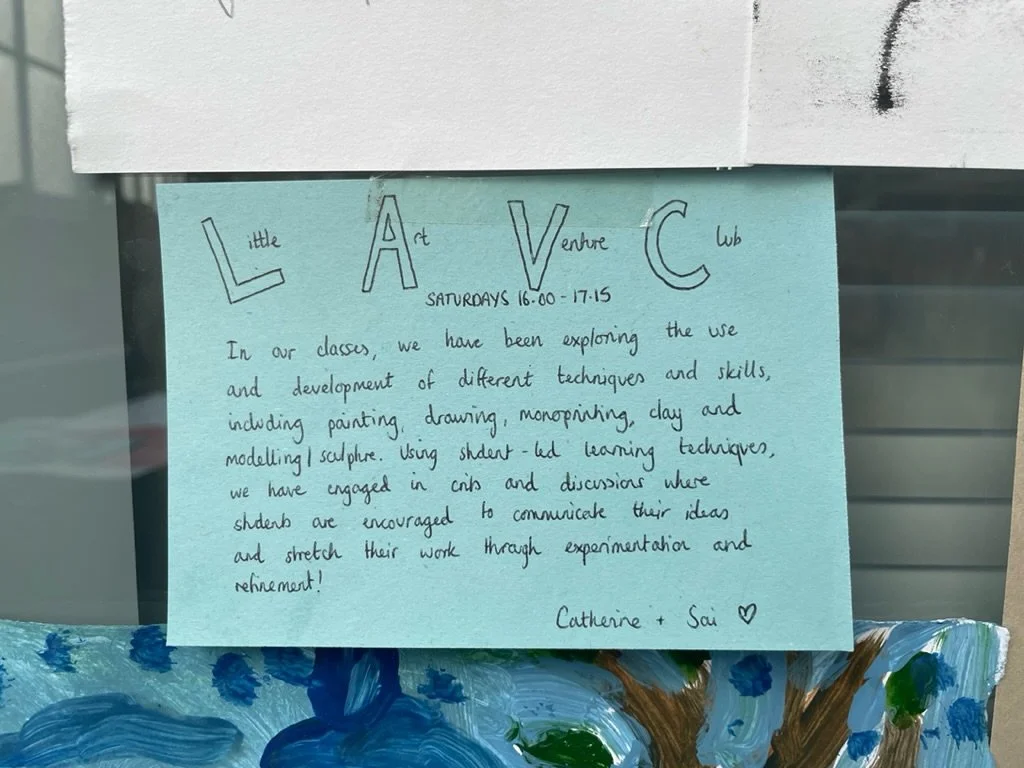 Little Art Venture Club
SATURDAYS 16.00 - 17.15
In our classes, we have been exploring the use
and development of different techniques and skills,
including painting, drawing, monoprinting, clay and
modelling / sculpture. Using student-led learning techniques,
we have engaged in crits and discussions where
students are encouraged to communicate their ideas
and stretch their work through experimentation and
refinement!
Catherine + Sai ♡